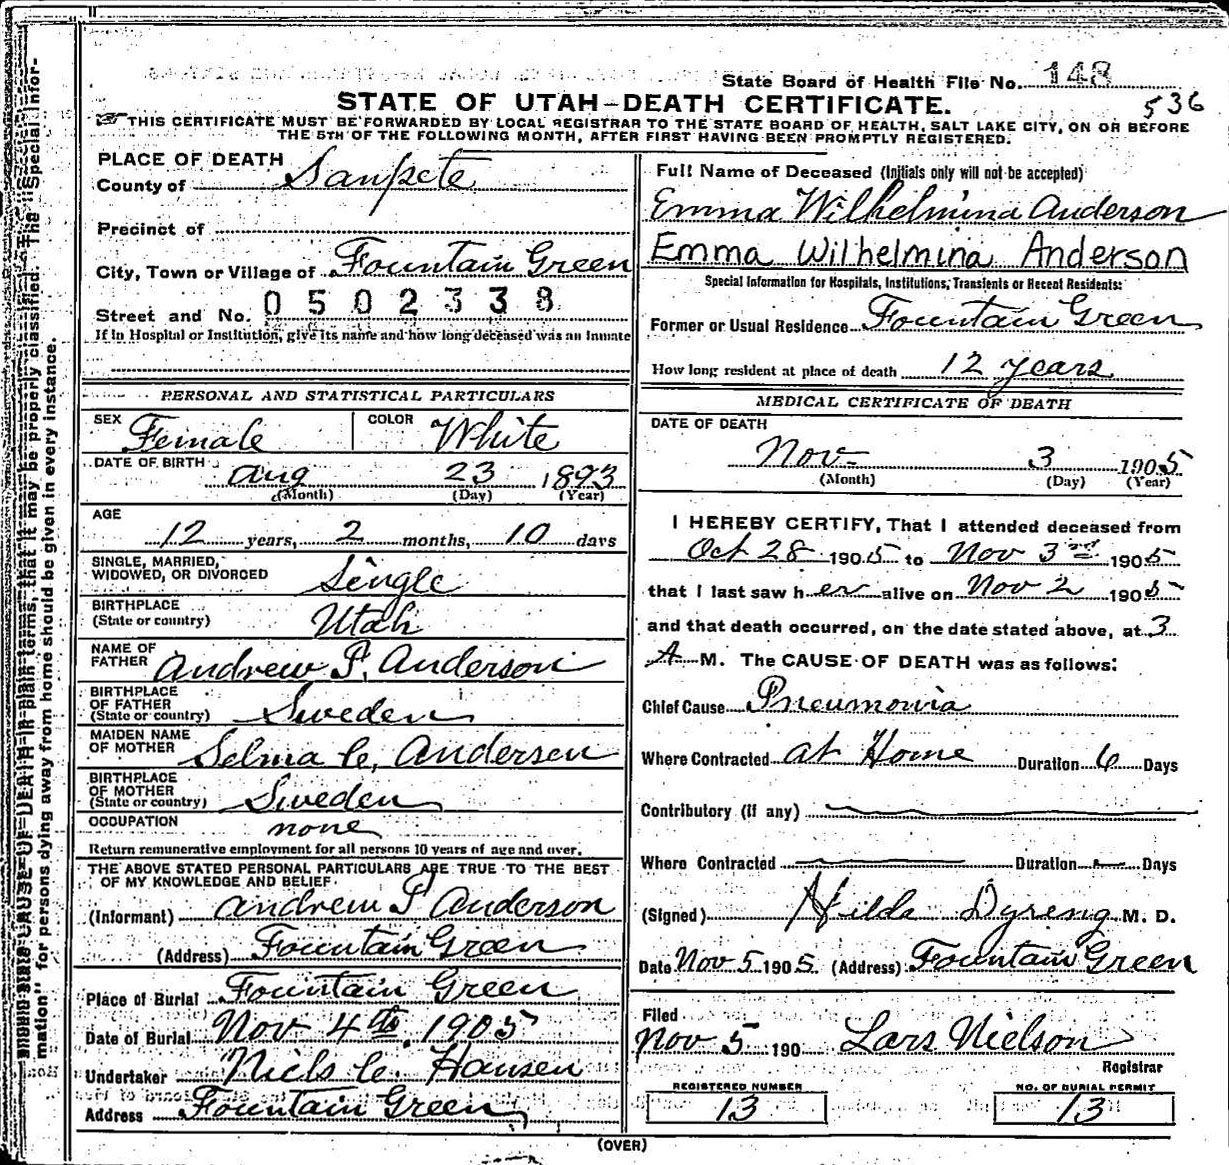 State Board of Health File No. 148
536
STATE OF UTAH—DEATH CERTIFICATE.
THIS CERTIFICATE MUST BE FORWARDED BY LOCAL REGISTRAR TO THE STATE BOARD OF HEALTH, SALT LAKE CITY, ON OR BEFORE
THE 5TH OF THE FOLLOWING MONTH, AFTER FIRST HAVING BEEN PROMPTLY REGISTERED.
PLACE OF DEATH
County of Sanpete
Precinct of
City, Town or Village of Fountain Green
Street and No. 0502338
If in Hospital or Institution, give its name and how long deceased was an inmate
PERSONAL AND STATISTICAL PARTICULARS
SEX Female COLOR White
DATE OF BIRTH Aug 23 1893
(Month) (Day) (Year)
AGE
12 years, 2 months, 10 days
SINGLE, MARRIED,
WIDOWED, OR DIVORCED Single
BIRTHPLACE
(State or country) Utah
NAME OF
FATHER Andrew P. Anderson
BIRTHPLACE
OF FATHER
(State or country) Sweden
MAIDEN NAME
OF MOTHER Selma C. Andersen
BIRTHPLACE
OF MOTHER
(State or country) Sweden
OCCUPATION none
Return remunerative employment for all persons 10 years of age and over.
THE ABOVE STATED PERSONAL PARTICULARS ARE TRUE TO THE BEST
OF MY KNOWLEDGE AND BELIEF.
(Informant) Andrew P Anderson
(Address) Fountain Green
Place of Burial Fountain Green
Date of Burial Nov 4th. 1905
Undertaker Niels C. Hansen
Address Fountain Green
Full Name of Deceased (Initials only will not be accepted)
Emma Wilhelmina Anderson
Emma Wilhelmina Anderson
Special Information for Hospitals, Institutions, Transients or Recent Residents:
Former or Usual Residence Fountain Green
How long resident at place of death 12 years
MEDICAL CERTIFICATE OF DEATH
DATE OF DEATH
Nov 3 1905
(Month) (Day) (Year)
I HEREBY CERTIFY, That I attended deceased from
Oct 28 1905 to Nov 3rd 1905
that I last saw her alive on Nov 2 1905
and that death occurred, on the date stated above, at 3
A M. The CAUSE OF DEATH was as follows:
Chief Cause Pneumonia
Where Contracted at Home Duration 6 Days
Contributory (if any)
Where Contracted Duration Days
(Signed) Hilda Dyreng M. D.
Date Nov 5 1905. (Address) Fountain Green
Filed
Nov 5 190 Lars Nielson
Registrar
REGISTERED NUMBER
13
NO. OF BURIAL PERMIT
13
(OVER)
CAUSE OF DEATH in plain terms, that it may be properly classified. The "Special Infor-
mation" for persons dying away from home should be given in every instance.